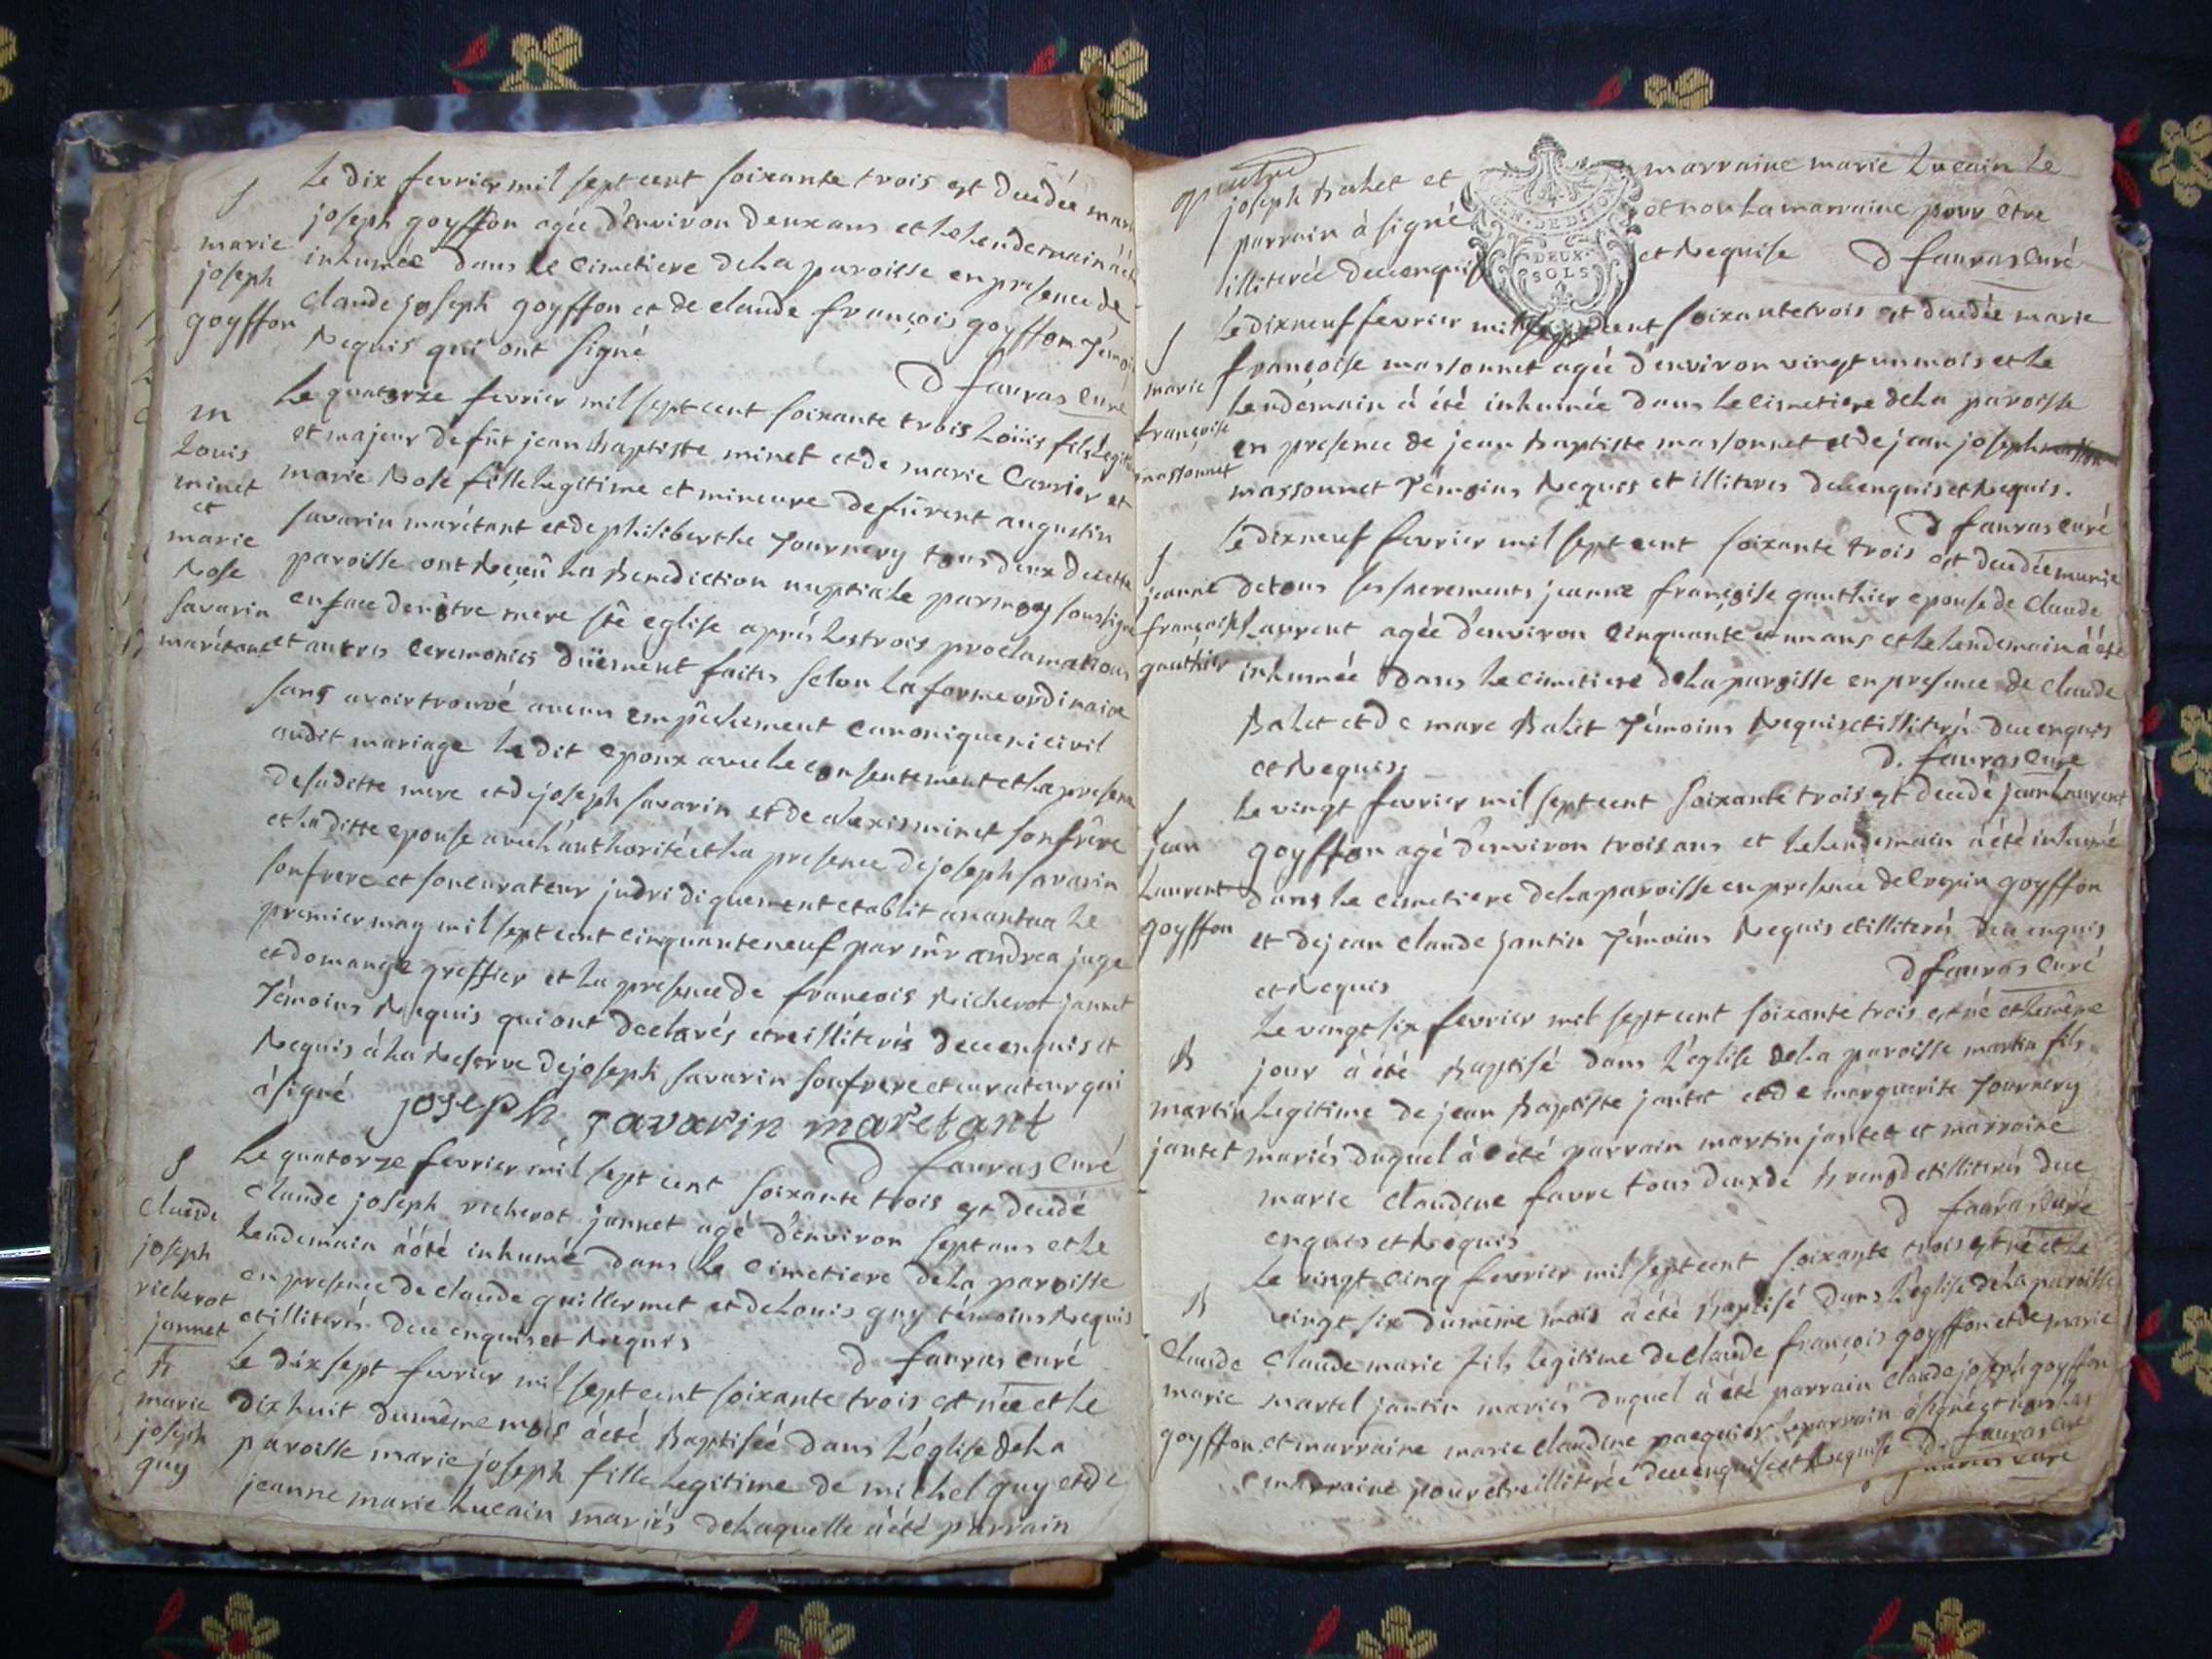 S
marie
joseph
goyffon
Le dix fevrier mil sept cent soixante trois est decedée marie
joseph goyffon agée d'environ deux ans et le lendemain à été
inhumée dans le cimetiere de la paroisse en presence de
claude joseph goyffon et de claude françois goyffon témoins
Requis qui ont signé
D fauras Curé
m
Louis
minet
et
marie
Rose
savarin
marétant
Le quatorze fevrier mil sept cent soixante trois Loüis fils Legitime
et majeur de fût jean Baptiste minet et de marie Carrier et
marie Rose fille Legitime et mineure de fûrent augustin
savarin marétant et de philiberthe Tournery tous deux de cette
paroisse ont Receû La Benediction nuptiale par moy soussigné
en face de nôtre mere ste eglise aprés Les trois proclamations
et autres Ceremonies düement faites selon La forme ordinaire
sans avoir trouvé aucun empêchement Canonique ni civil
audit mariage Le dit epoux avec Le consentement et La presence
de sa ditte mere et de joseph savarin et de alexis minet son frère
et La ditte epouse avec L'authorité et La presence de joseph savarin
son frere et son curateur judridiquement etablit a nantua Le
premier may mil sept cent cinquante neuf par mr andrea juge
et domange greffier et La presence de françois Richerot jannet
Témoins Requis qui ont declarés etre illiterés de ce enquis et
Requis à La Reserve de joseph savarin son frere et curateur qui
à signé
joseph savarin maretant
D fauras Curé
S
Claude
joseph
richerot
jannet
Le quatorze fevrier mil sept cent soixante trois est decedé
Claude joseph richerot jannet agé d'environ sept ans et Le
Lendemain à été inhumé dans Le cimetiere de La paroisse
en presence de claude guillermet et de Louis guy témoins Requis
et illiterés de ce enquis et Requis
D fauras curé
B
marie
joseph
guy
Le dix sept fevrier mil sept cent soixante trois est née et Le
dix huit du même mois à été Baptisée dans L'église de La
paroisse marie joseph fille Legitime de michel guy et de
jeanne marie Lucain mariés de Laquelle à été parrain
joseph Balet et marraine marie Lucain Le
parrain à signé et non La marraine pour être
illiterée de ce enquise et Requise D fauras Curé
DEUX
SOLS
S
marie
françoise
massonnet
Le dix neuf fevrier mil sept cent soixante trois est decedée marie
françoise massonnet agée d'environ vingt un mois et Le
Lendemain à été inhumée dans Le cimetiere de La paroisse
en presence de jean Baptiste massonnet et de jean joseph
massonnet Témoins Requis et illiteres de ce enquis et Requis.
D fauras curé
S
jeanne
françoise
gauthier
Le dix neuf fevrier mil sept cent soixante trois est decedée munie
de tous ses sacrements jeanne françoise gauthier epouse de Claude
Laurent agée d'environ Cinquante et un ans et Le Lendemain à été
inhumée dans Le cimetiere de La paroisse en presence de Claude
Balet et de marc Balet Témoins Requis et illiterés de ce enquis
et Requis.
D. fauras Curé
S
jean
Laurent
goyffon
Le vingt fevrier mil sept cent soixante trois est decedé jean Laurent
goyffon agé d'environ trois ans et Le Lendemain à été inhumé
dans Le cimetiere de La paroisse en presence de Crepin goyffon
et de jean claude jantin Témoins Requis et illiterés de ce enquis
et Requis
D fauras Curé
B
martin
jantet
Le vingt six fevrier mil sept cent soixante trois est né et Le même
jour à été Baptisé dans L'église de La paroisse martin fils
Legitime de jean Baptiste jantet et de marguerite Tournery
mariés duquel à été parrain martin jantet et marraine
marie Claudine favre tous deux de et illiterés de ce
enquis et Requis
D fauras Curé
B
Claude
marie
goyffon
Le vingt cinq fevrier mil sept cent soixante trois est né et Le
vingt six du même mois à été Baptisé dans L'église de La paroisse
Claude marie fils Legitime de claude françois goyffon et de marie
martel jantin mariés duquel à été parrain Claude joseph goyffon
et marraine marie claudine pacquier Le parrain à signé et non La
marraine pour etre illiterée de ce enquise et Requise D. fauras Curé